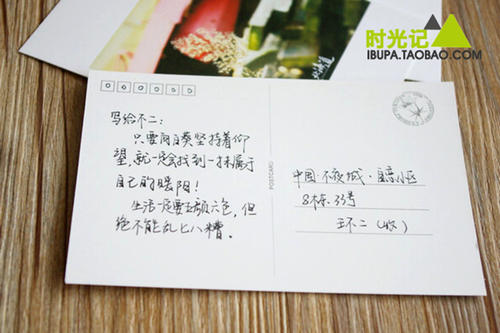 时光记
IBUPA.TAOBAO.COM
写给不二:
只要向日葵坚持着仰
望,就一定会找到一抹属于
自己的暖阳!
生活一定要五颜六色,但
绝不能乱七八糟。
POSTCARD
中国·不夜城·
8栋33号
王不二(收)